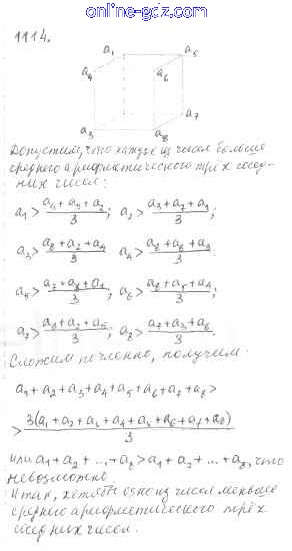 online-gdz.com
1114.
a₁ a₅
a₄ a₆
a₇
a₃ a₈
Допустим, что каждое из чисел больше
среднего арифметического трёх сосед-
них чисел:
a₁ > (a₄+a₅+a₂)/3; a₂ > (a₃+a₇+a₁)/3;
a₃ > (a₈+a₂+a₄)/3 a₄ >
a₅ > a₆ > (a₈+a₅+a₄)/3;
a₇ > a₈ > (a₇+a₃+a₆)/3.
Сложим почленно, получим:
a₁+a₂+a₃+a₄+a₅+a₆+a₇+a₈>
> 3(a₁+a₂+a₃+a₄+a₅+a₆+a₇+a₈)/3
или a₁+a₂+...+a₈>a₁+a₂+...+a₈, что
невозможно.
Итак, хотя бы одно из чисел меньше
среднего арифметического трёх
соседних чисел.